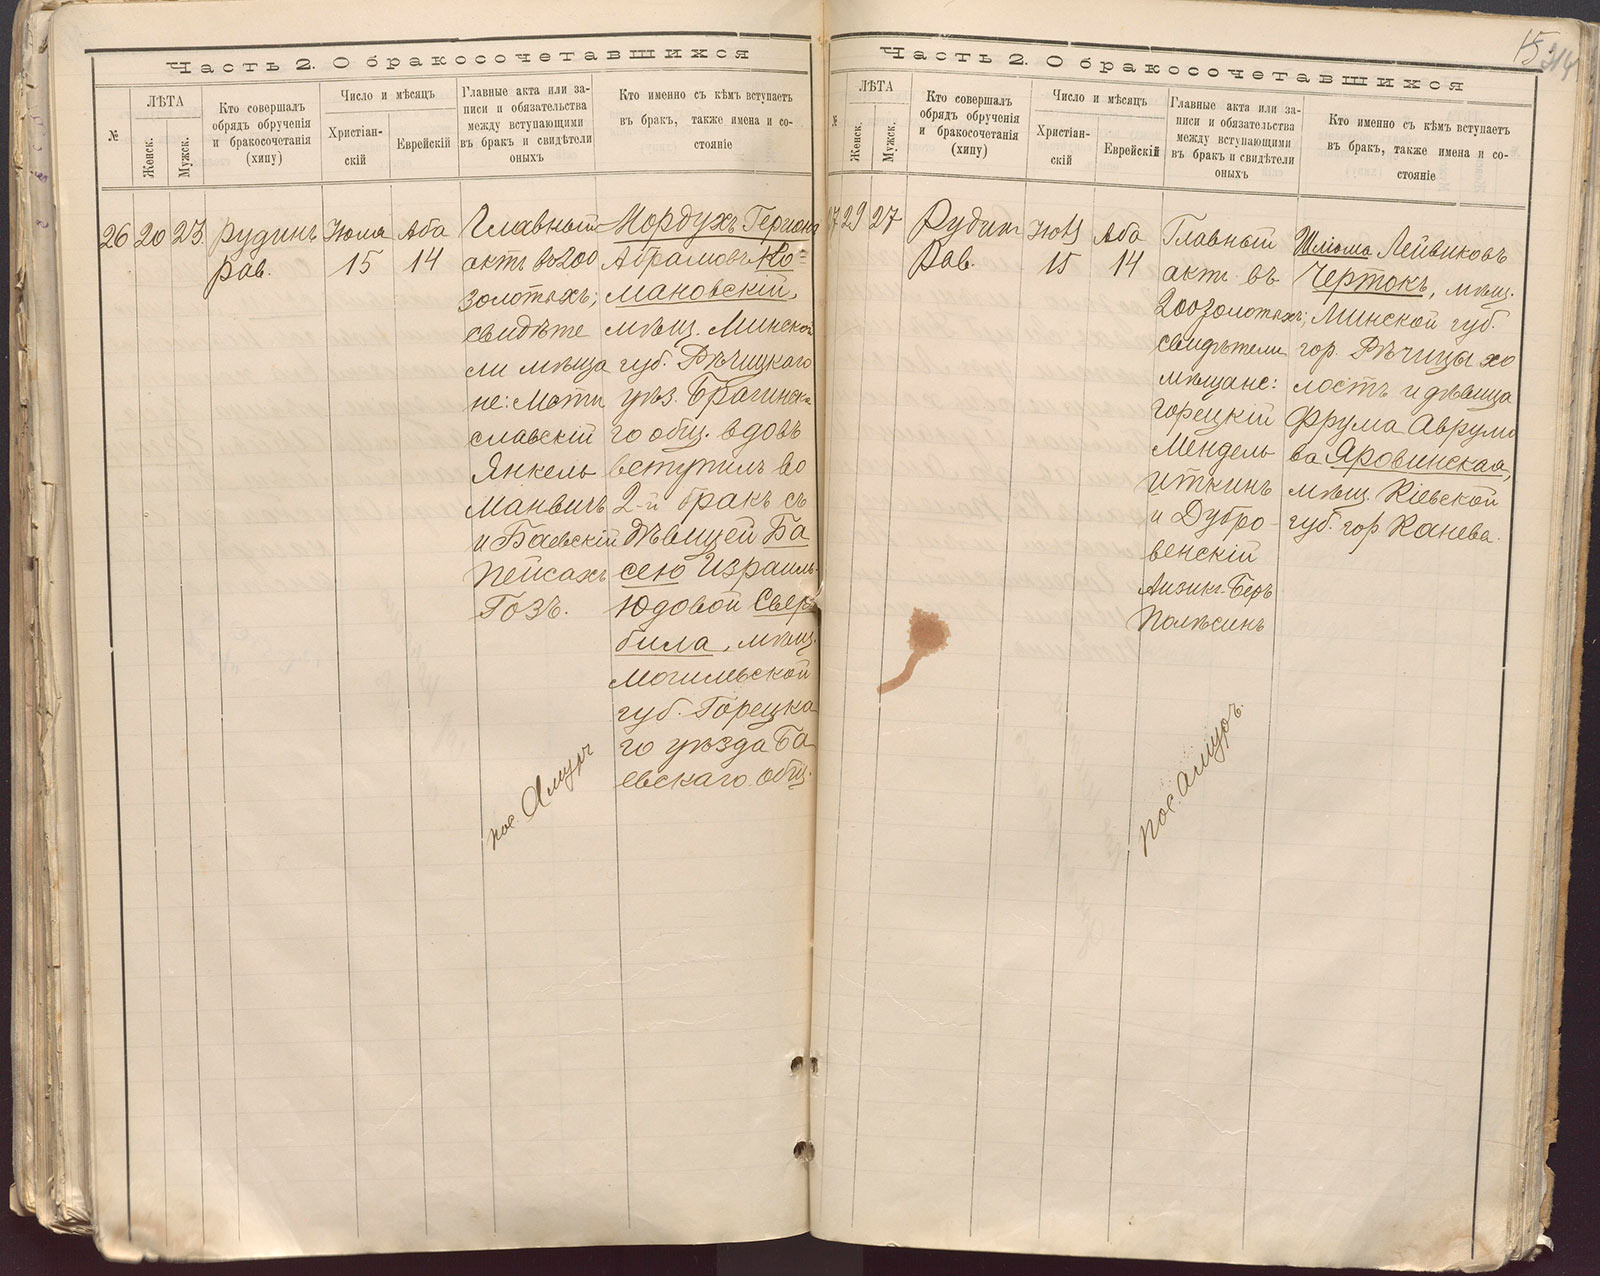 Часть 2. О бракосочетавшихся
№
ЛѢТА
Женск.
Мужск.
Кто совершалъ
обрядъ обрученія
и бракосочетанія
(хипу)
Число и мѣсяцъ
Христіан-
скій
Еврейскій
Главные акта или за-
писи и обязательства
между вступающими
въ бракъ и свидѣтели
оныхъ
Кто именно съ кѣмъ вступаетъ
въ бракъ, также имена и со-
стояніе
26
20
23
Рудинъ
Рав.
Июля
15
Аба
14
Главный
актъ во 200
золотыхъ;
свидѣте
ли мѣща
не: Мсти
славскій
Янкель
Маневичъ
и Баевскій
Пейсахъ
Гозъ.
пос. Амуръ
Мордухъ Гершонъ
Абрамовъ Ко=
мановскій,
мѣщ. Минской
губ. Рѣчицкаго
уѣз. Брагинска
го общ. вдовъ
вступилъ во
2-й бракъ съ
дѣвицей Ба
сею Израиль-
Юдовой Свер
била, мѣщ.
Могилевской
губ. Горецка
го уѣзда Ба
евскаго общ.
15
314
Часть 2. О бракосочетавшихся
№
ЛѢТА
Женск.
Мужск.
Кто совершалъ
обрядъ обрученія
и бракосочетанія
(хипу)
Число и мѣсяцъ
Христіан-
скій
Еврейскій
Главные акта или за-
писи и обязательства
между вступающими
въ бракъ и свидѣтели
оныхъ
Кто именно съ кѣмъ вступаетъ
въ бракъ, также имена и со-
стояніе
27
29
27
Рудинъ
Рав.
Июля
15
Аба
14
Главный
актъ въ
200 золотыхъ;
свидѣтели
мѣщане:
Горецкій
Мендель
Иткинъ
и Дубро-
венскій
Айзикъ-Беръ
Полѣсинъ
пос. Амуръ.
Шліома Лейвиковъ
Чертокъ, мѣщ.
Минской губ.
гор. Рѣчицы хо
лостъ и дѣвица
Фрума Аврумо
ва Яровинская,
мѣщ. Кіевской
губ. гор Канева.